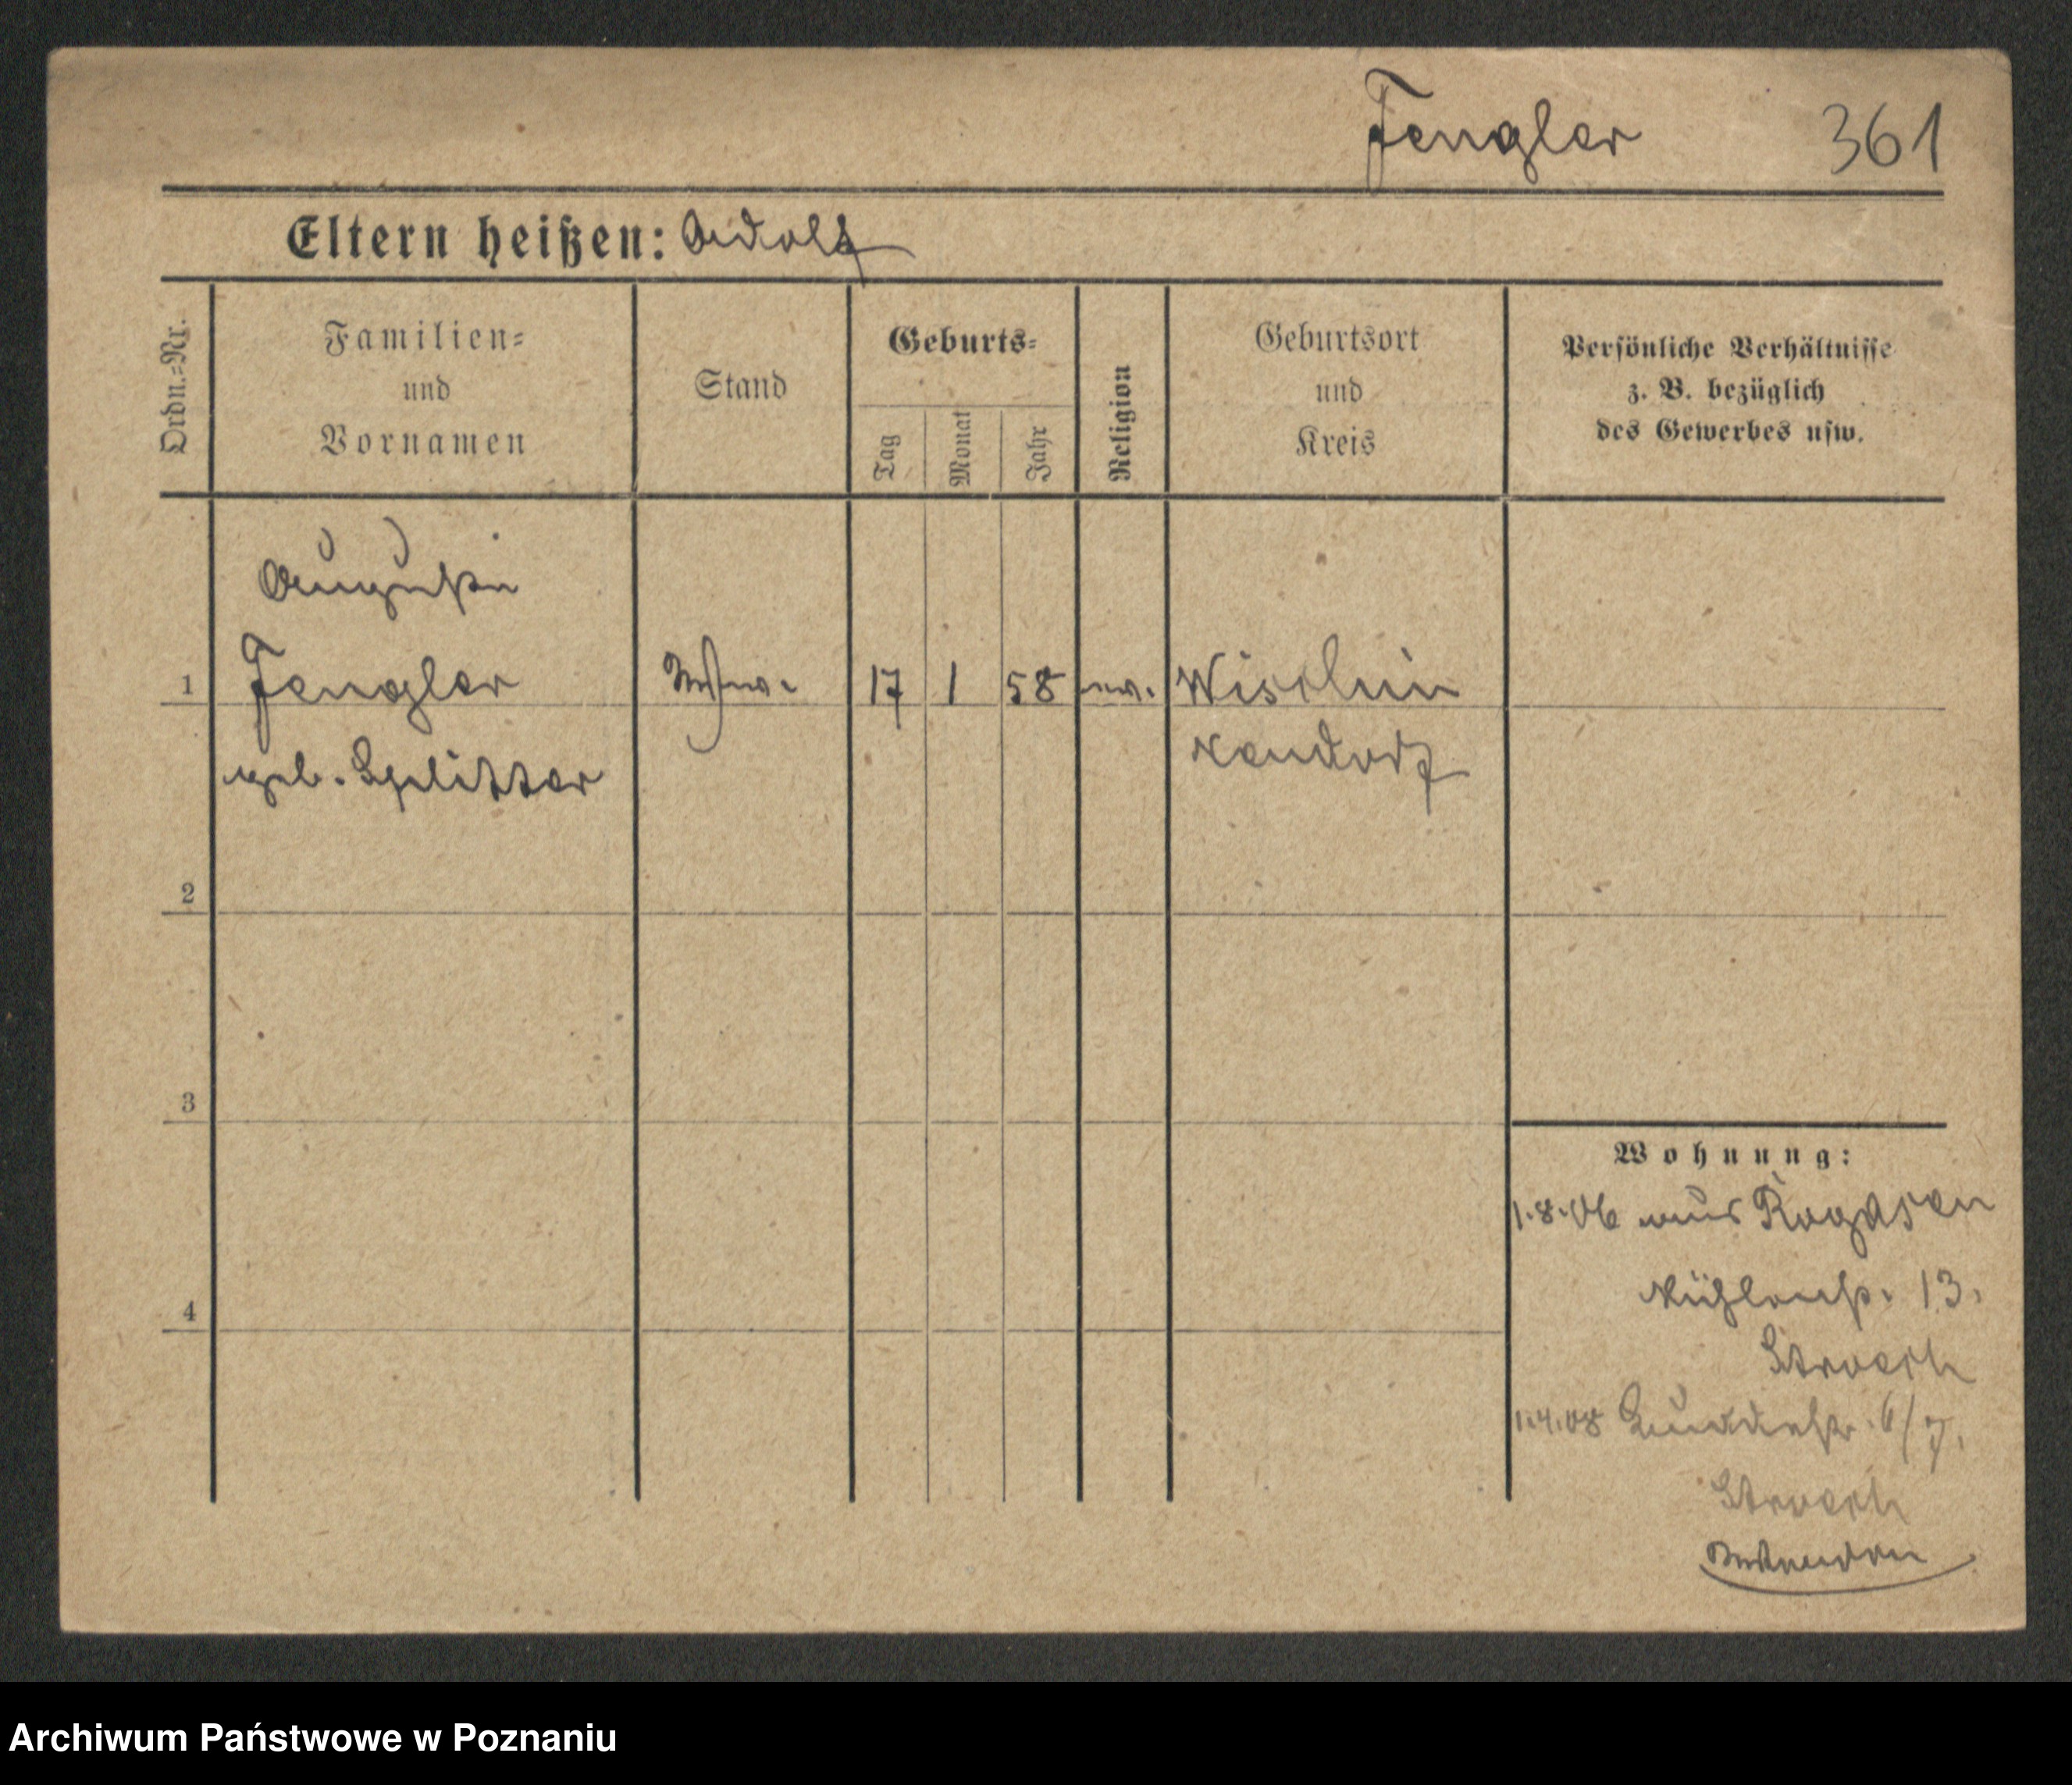 Fengler 361
Eltern heißen: Adolf
Ordn.-Nr.
Familien-
und
Vornamen
Stand
Geburts-
Tag
Monat
Jahr
Religion
Geburtsort
und
Kreis
Persönliche Verhältnisse
z. B. bezüglich
des Gewerbes usw.
Auguste
1 Fengler Wwe. 17 1 58 ev. Wischin
geb. Splitter
2
3
4
Wohnung:
1.8.06 aus Rogasen
Mühlenstr. 13.
1.4.08 6/7.
Archiwum Państwowe w Poznaniu